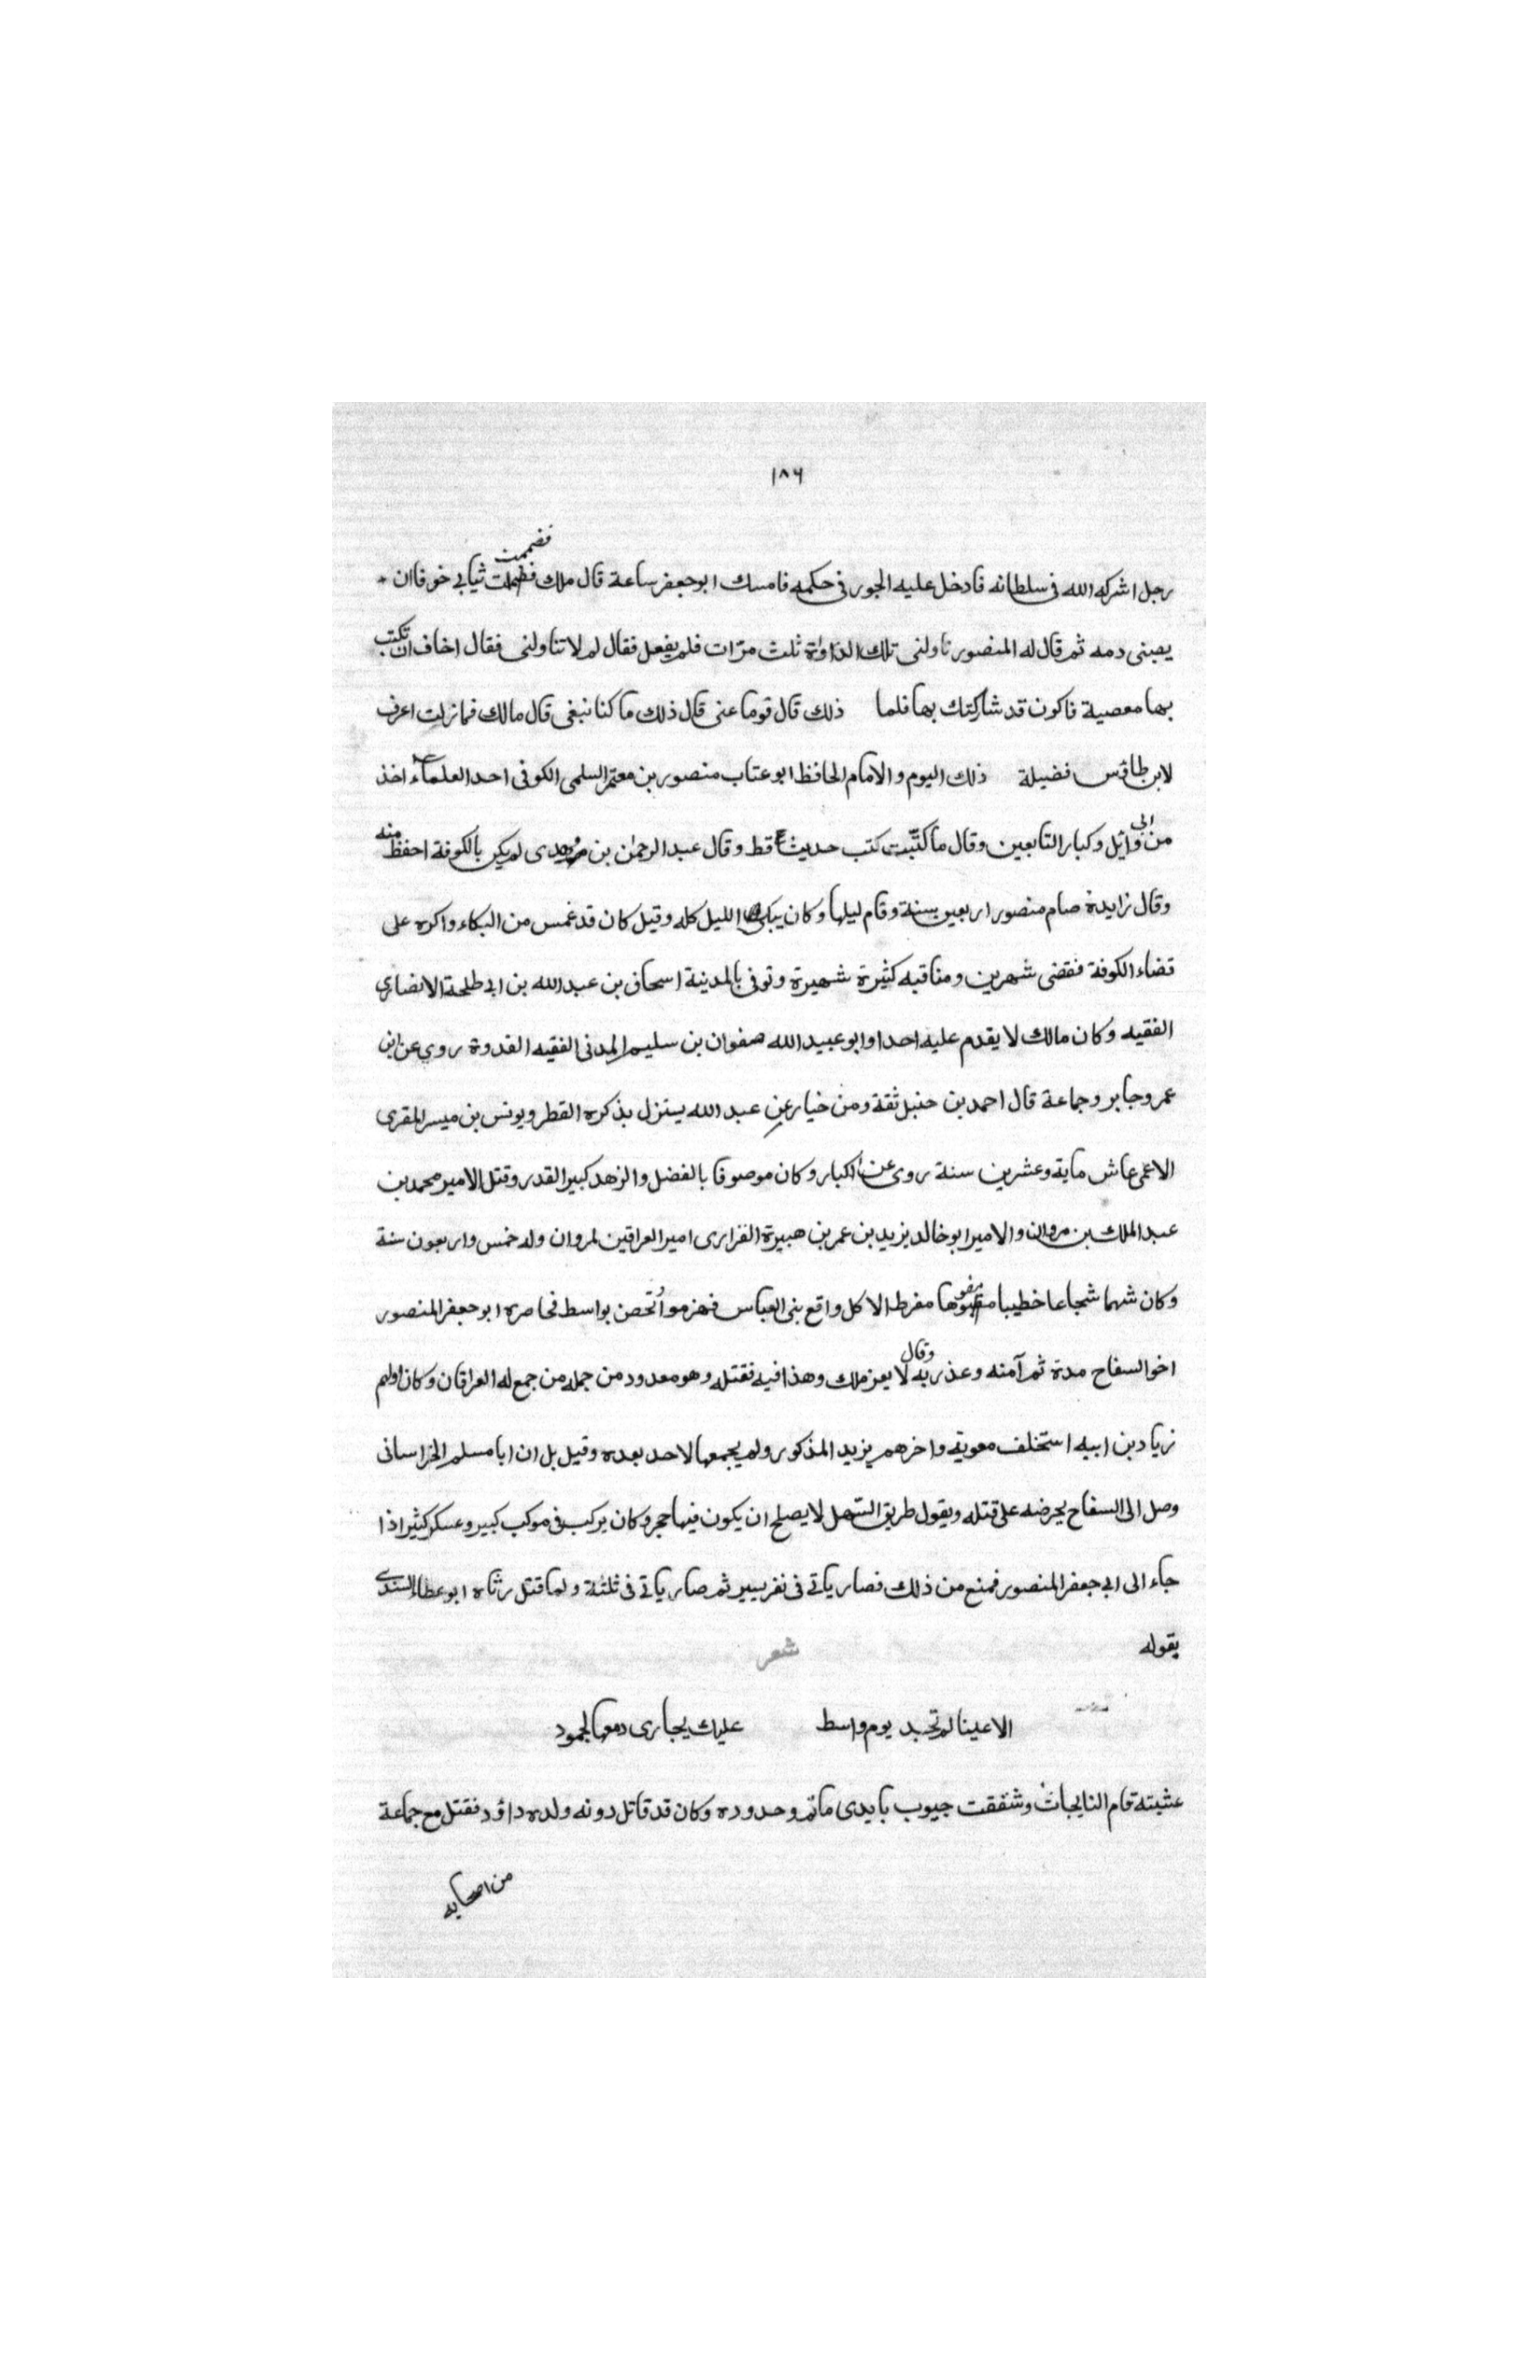 ١٨٦
فضممت
رجل اشركه الله فى سلطانه فادخل عليه الجور فى حكمه فامسك ابو جعفر ساعة قال ملك ثيابي خوفا ان
يصبنى دمه ثم قال له المنصور ناولنى تلك الدواة ثلث مرّات فلم يفعل فقال لم لا تناولنى فقال اخاف ان تكتب
بها معصية فاكون قد شاركتك بها فلما ذلك قال قوما عنى قال ذلك ما كنا نبغى قال مالك فما زلت اعرف
لابن طاوٗس فضيلة ذلك اليوم و الامام الحافظ ابو عتاب منصور بن معتمر السلمى الكوفى احد العلماء اخذ
من ابى وائل وكبار التابعين وقال ما كتبت كتب حديثا قط وقال عبد الرحمٰن بن مهدى لم يكن بالكوفة احفظ منه
وقال زايدة صام منصور اربعين سنة وقام ليلها وكان يبكى الليل كله وقيل كان قد غمس من البكاء واكره على
قضاء الكوفة فقضى شهرين ومناقبه كثيرة شهيرة وتوفى بالمدينة اسحاق بن عبد الله بن ابي طلحة الانصاري
الفقيه وكان مالك لا يقدم عليه احدا وابو عبيد الله صفوان بن سليم المدنى الفقيه القدوة روي عن ابن
عمر وجابر وجماعة قال احمد بن حنبل ثقة ومن خيار عن عبد الله يستنزل بذكره القطر ويونس بن ميسر المقرى
الاعمى عاش ماية وعشرين سنة روى عن الكبار وكان موصوفا بالفضل والزهد كبير القدر وقتل الامير محمد بن
عبد الملك بن مروان والامير ابو خالد يزيد بن عمر بن هبيرة الفزارى امير العراقين لمروان وله خمس واربعون سنة
وكان شهما شجاعا خطيبا مفوها مفرط الاكل واقع بنى العباس فهزموا وتحصن بواسط فحاصره ابو جعفر المنصور
اخو السفاح مدة ثم آمنه وغدر به وقال لا يعز ملك وهذا فيه فقتله وهو معدود من جمله من جمع له العراقان وكان اولهم
زياد بن ابيه استخلف معوية واخرهم يزيد المذكور ولم يجمعها لاحد بعده وقيل بل ان ابا مسلم الخراسانى
وصل الى السفاح يحرضه على قتله ويقول طريق السّهل لا يصلح ان يكون فيها حجر وكان يركب فى موكب كبير وعسكر كثير اذا
جاء الى ابي جعفر المنصور فمنع من ذلك فصار ياتي فى نفر يسير ثم صار ياتي فى ثلثة ولما قتل رثاه ابو عطاء السندى
يقوله شعر
الا عينا لم تجد يوم واسط عليك بجارى دمعها لجمود
عشيته قام النايحات وشققت جيوب بايدى ماتم وحدوده وكان قد قاتل دونه ولده داؤد فقتل مع جماعة
من اصحابه